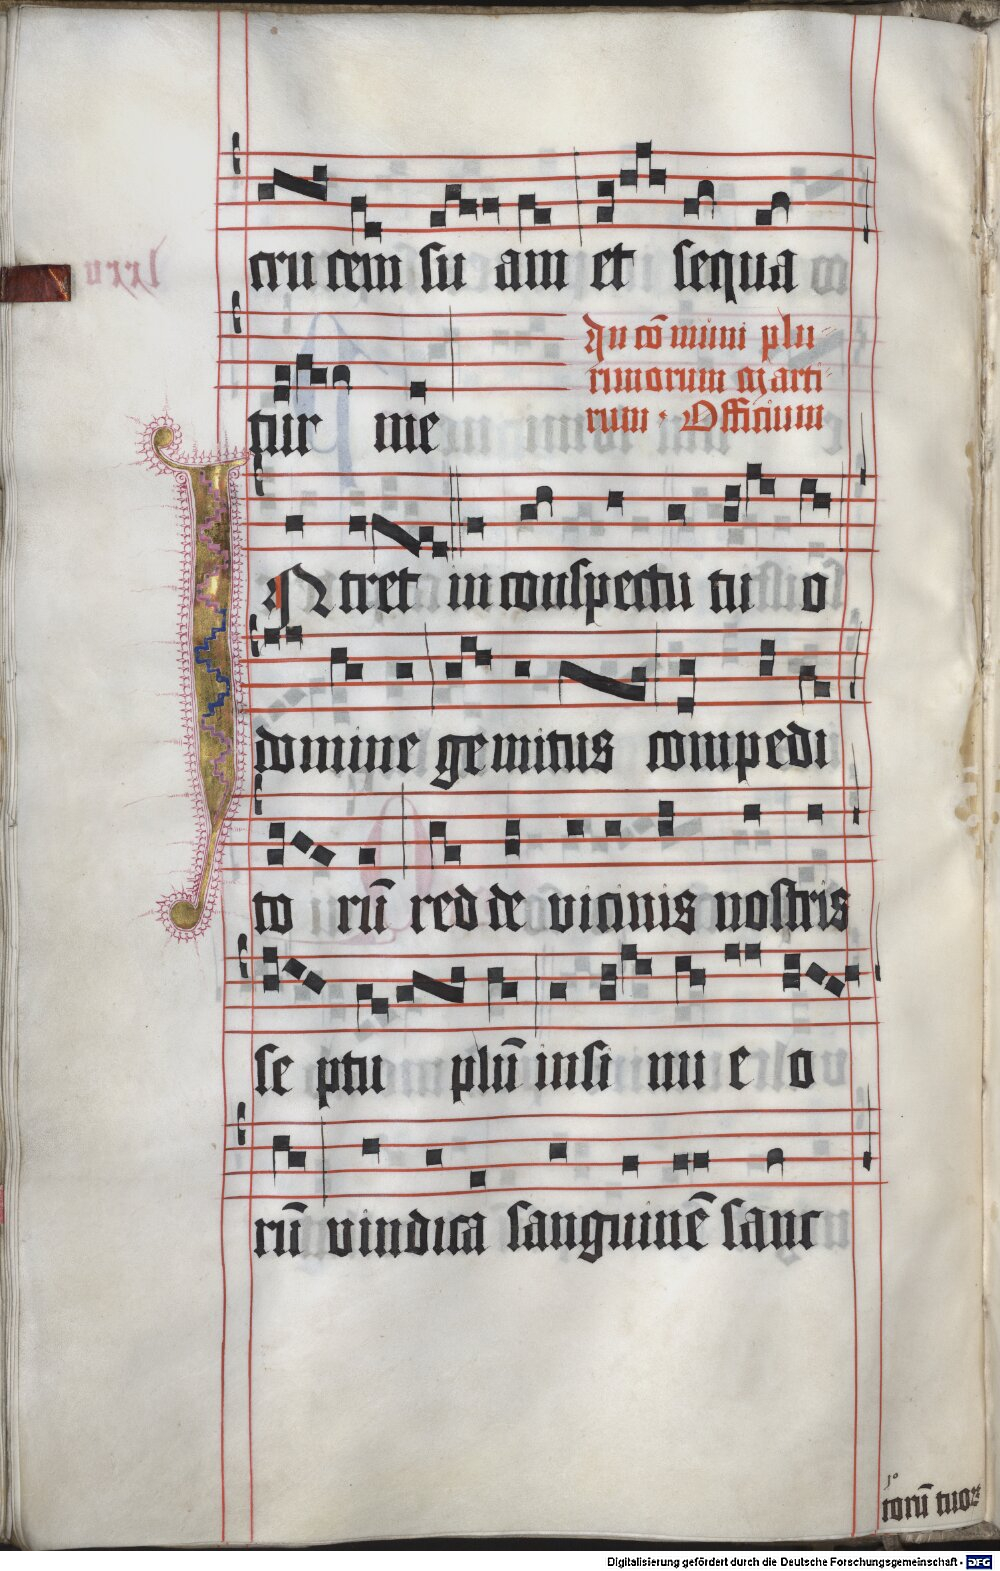 cru cem su am et sequa
tur me
In cō muni plu
rimorum Marti
rum · Officium
INtret in conspectu tu o
domine gemitus compedi
to rū red de vicinis nostris
se ptu plū in si nu e o
rū vindica sanguinē sanc
torū tuoꝝ
Digitalisierung gefördert durch die Deutsche Forschungsgemeinschaft - DFG